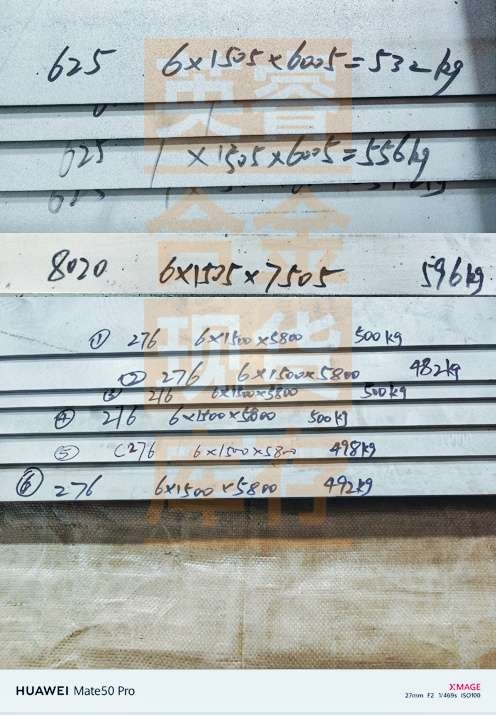 625 6×1505×6005=532kg
625 ×1505×6005=556kg
8020 6×1505×7505 596kg
① 276 6×1500×5800 500kg
② 276 6×1500×5800 482kg
③ 276 6×1500×5800 500kg
④ 276 6×1500×5800 500kg
⑤ C276 6×1500×5800 498kg
⑥ 276 6×1500×5800 492kg
英睿
合金
现货
库存
HUAWEI Mate50 Pro
XMAGE
27mm F2 1/469s ISO100